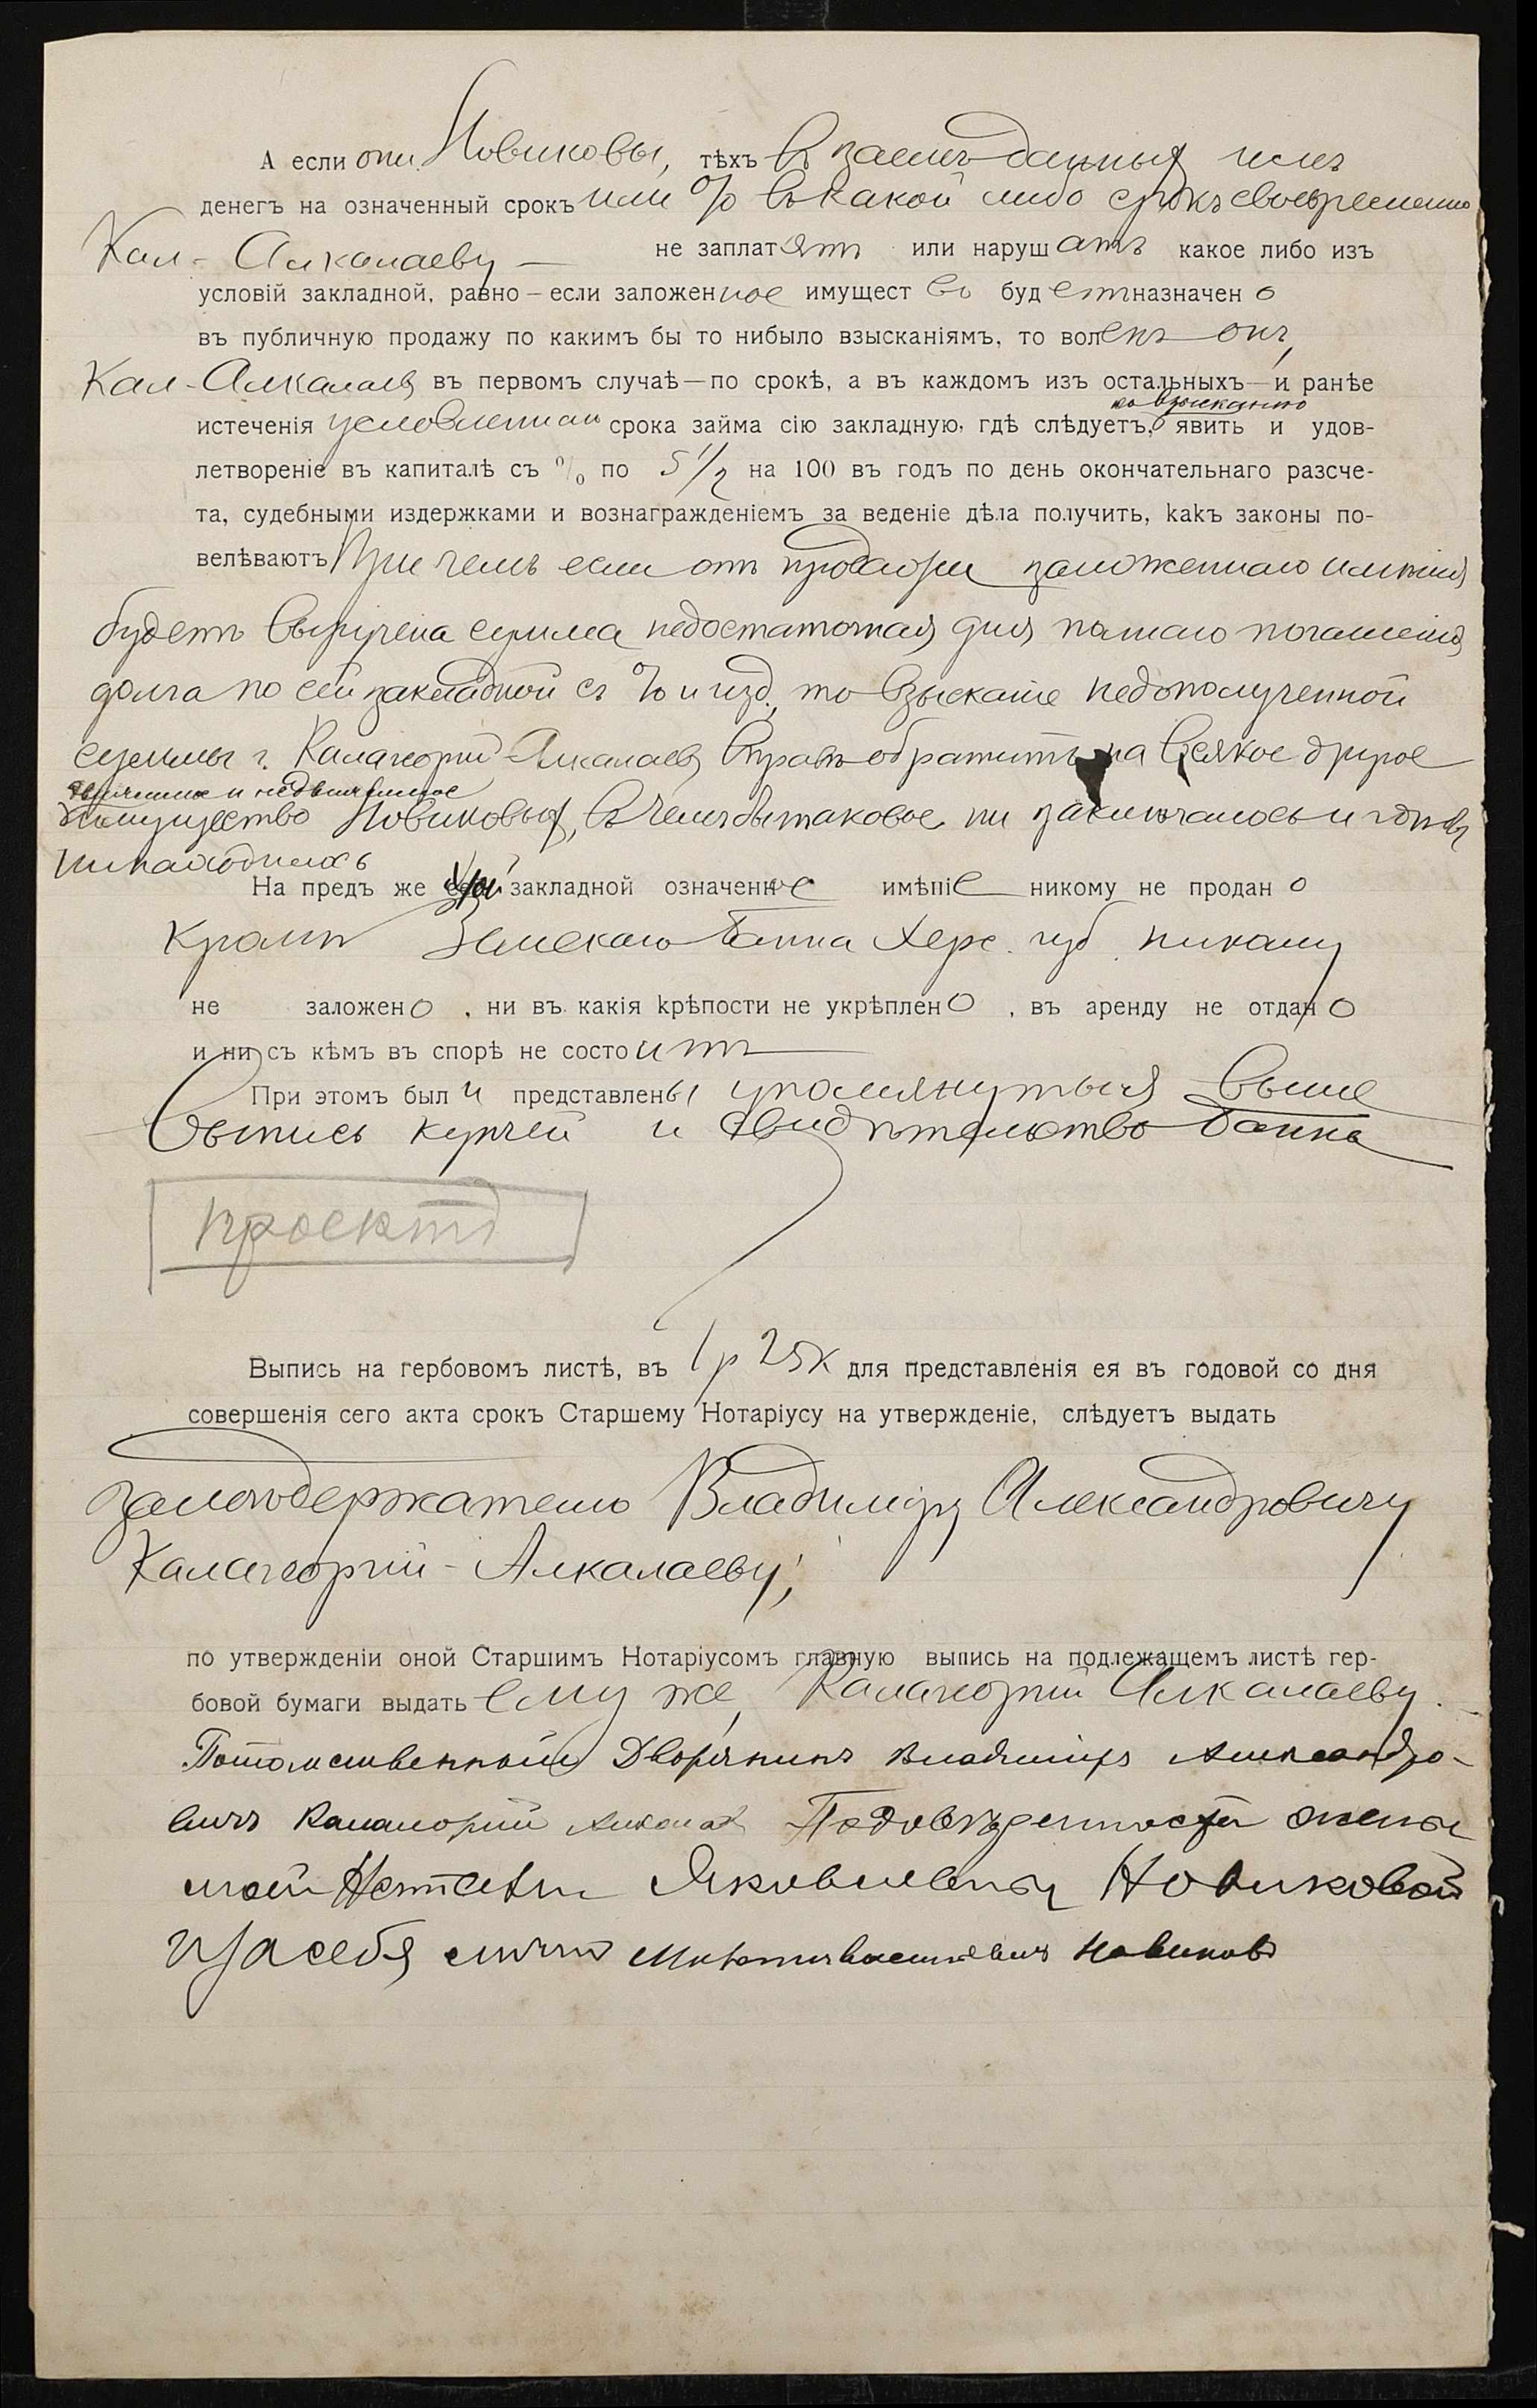 А если они Новиковы, тѣхъ въ заемъ данныхъ имъ
денегъ на означенный срокъ или % въ какой либо срокъ своевременно
Кал-Алкалаеву — не заплатятъ или нарушатъ какое либо изъ
условій закладной, равно — если заложенное имущество будетъ назначено
въ публичную продажу по какимъ бы то нибыло взысканіямъ, то воленъ онъ,
Кал-Алкалаевъ въ первомъ случаѣ — по срокѣ, а въ каждомъ изъ остальныхъ — и ранѣе
ко взысканію
истеченія условленнаго срока займа сію закладную, гдѣ слѣдуетъ, явить и удов-
летвореніе въ капиталѣ съ % по 5 1/2 на 100 въ годъ по день окончательнаго разсче-
та, судебными издержками и вознагражденіемъ за веденіе дѣла получить, какъ законы по-
велѣваютъ При чемъ если отъ продажи заложеннаго имѣнія
будетъ выручена сумма недостаточная для полнаго погашенія
долга по сей закладной съ % и изд., то взысканіе недополученной
суммы г. Калагеоргій-Алкалаевъ вправѣ обратить на всякое другое
движимое и недвижимое
имущество Новиковыхъ, въ чемъ бы таковое ни заключалось и гдѣ бы
ни находилось
На предъ же сей закладной означенное имѣніе никому не продано
кромѣ Земскаго Банка Херс. губ. никому
не заложено, ни въ какія крѣпости не укрѣплено, въ аренду не отдано
и ни съ кѣмъ въ спорѣ не состоитъ
При этомъ были представлены упомянутыя выше
выпись купчей и свидѣтельство банка
проектъ
Выпись на гербовомъ листѣ, въ 1 р 25 к для представленія ея въ годовой со дня
совершенія сего акта срокъ Старшему Нотаріусу на утвержденіе, слѣдуетъ выдать
залогодержателю Владиміру Александровичу
Калагеоргій-Алкалаеву;
по утвержденіи оной Старшимъ Нотаріусомъ главную выпись на подлежащемъ листѣ гер-
бовой бумаги выдать ему же, Калагеоргій Алкалаеву.
Потомственный Дворянинъ Владиміръ Александро-
вичъ Калагеоргій Алкалаевъ По довѣренности жены
моей Яковлевны Новиковой
и за себя лично Васильевичъ Новиковъ